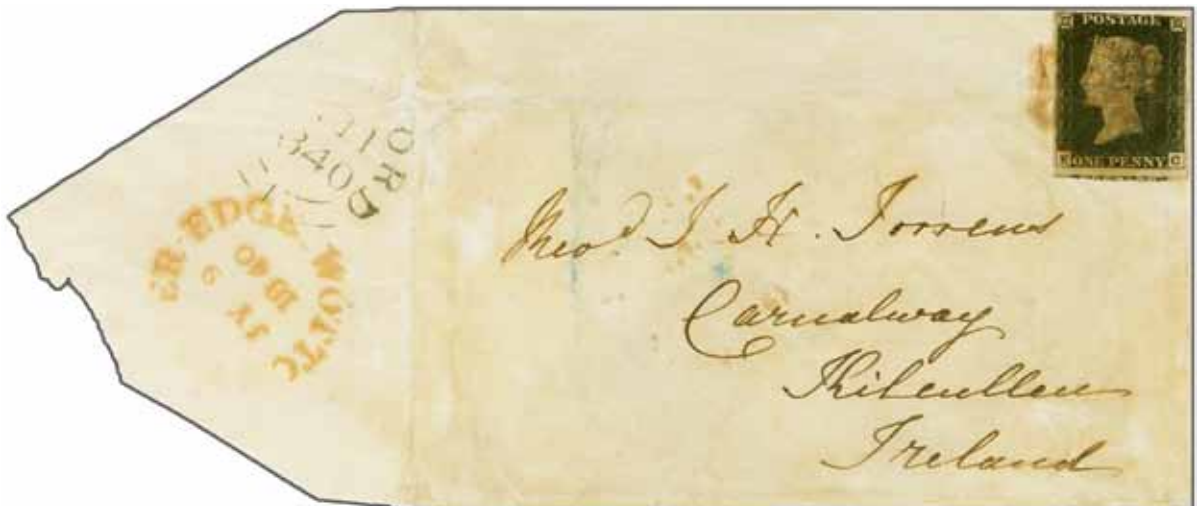 POSTAGE
ONE PENNY
C
ORD
ER·EDGE
WOTTO
JY
1840
Revd J. H. Torrens
Carnalway
Kilcullen
Ireland